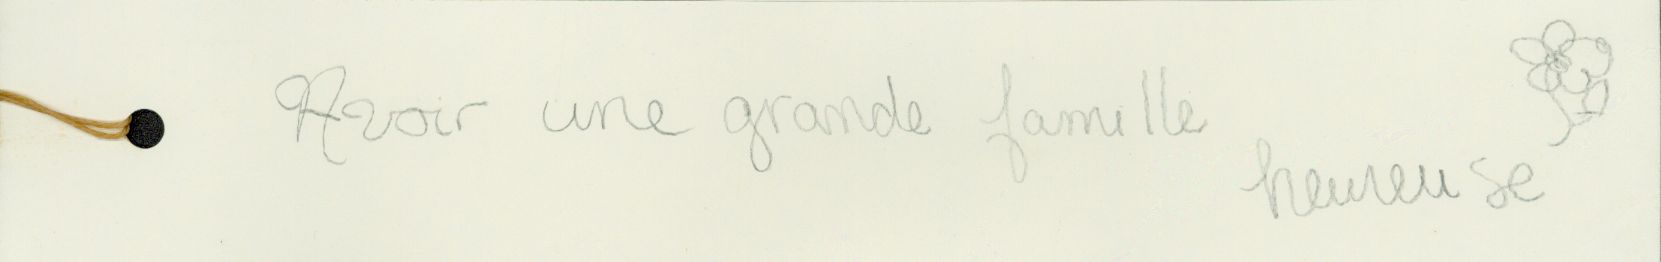 Avoir une grande famille
heureuse